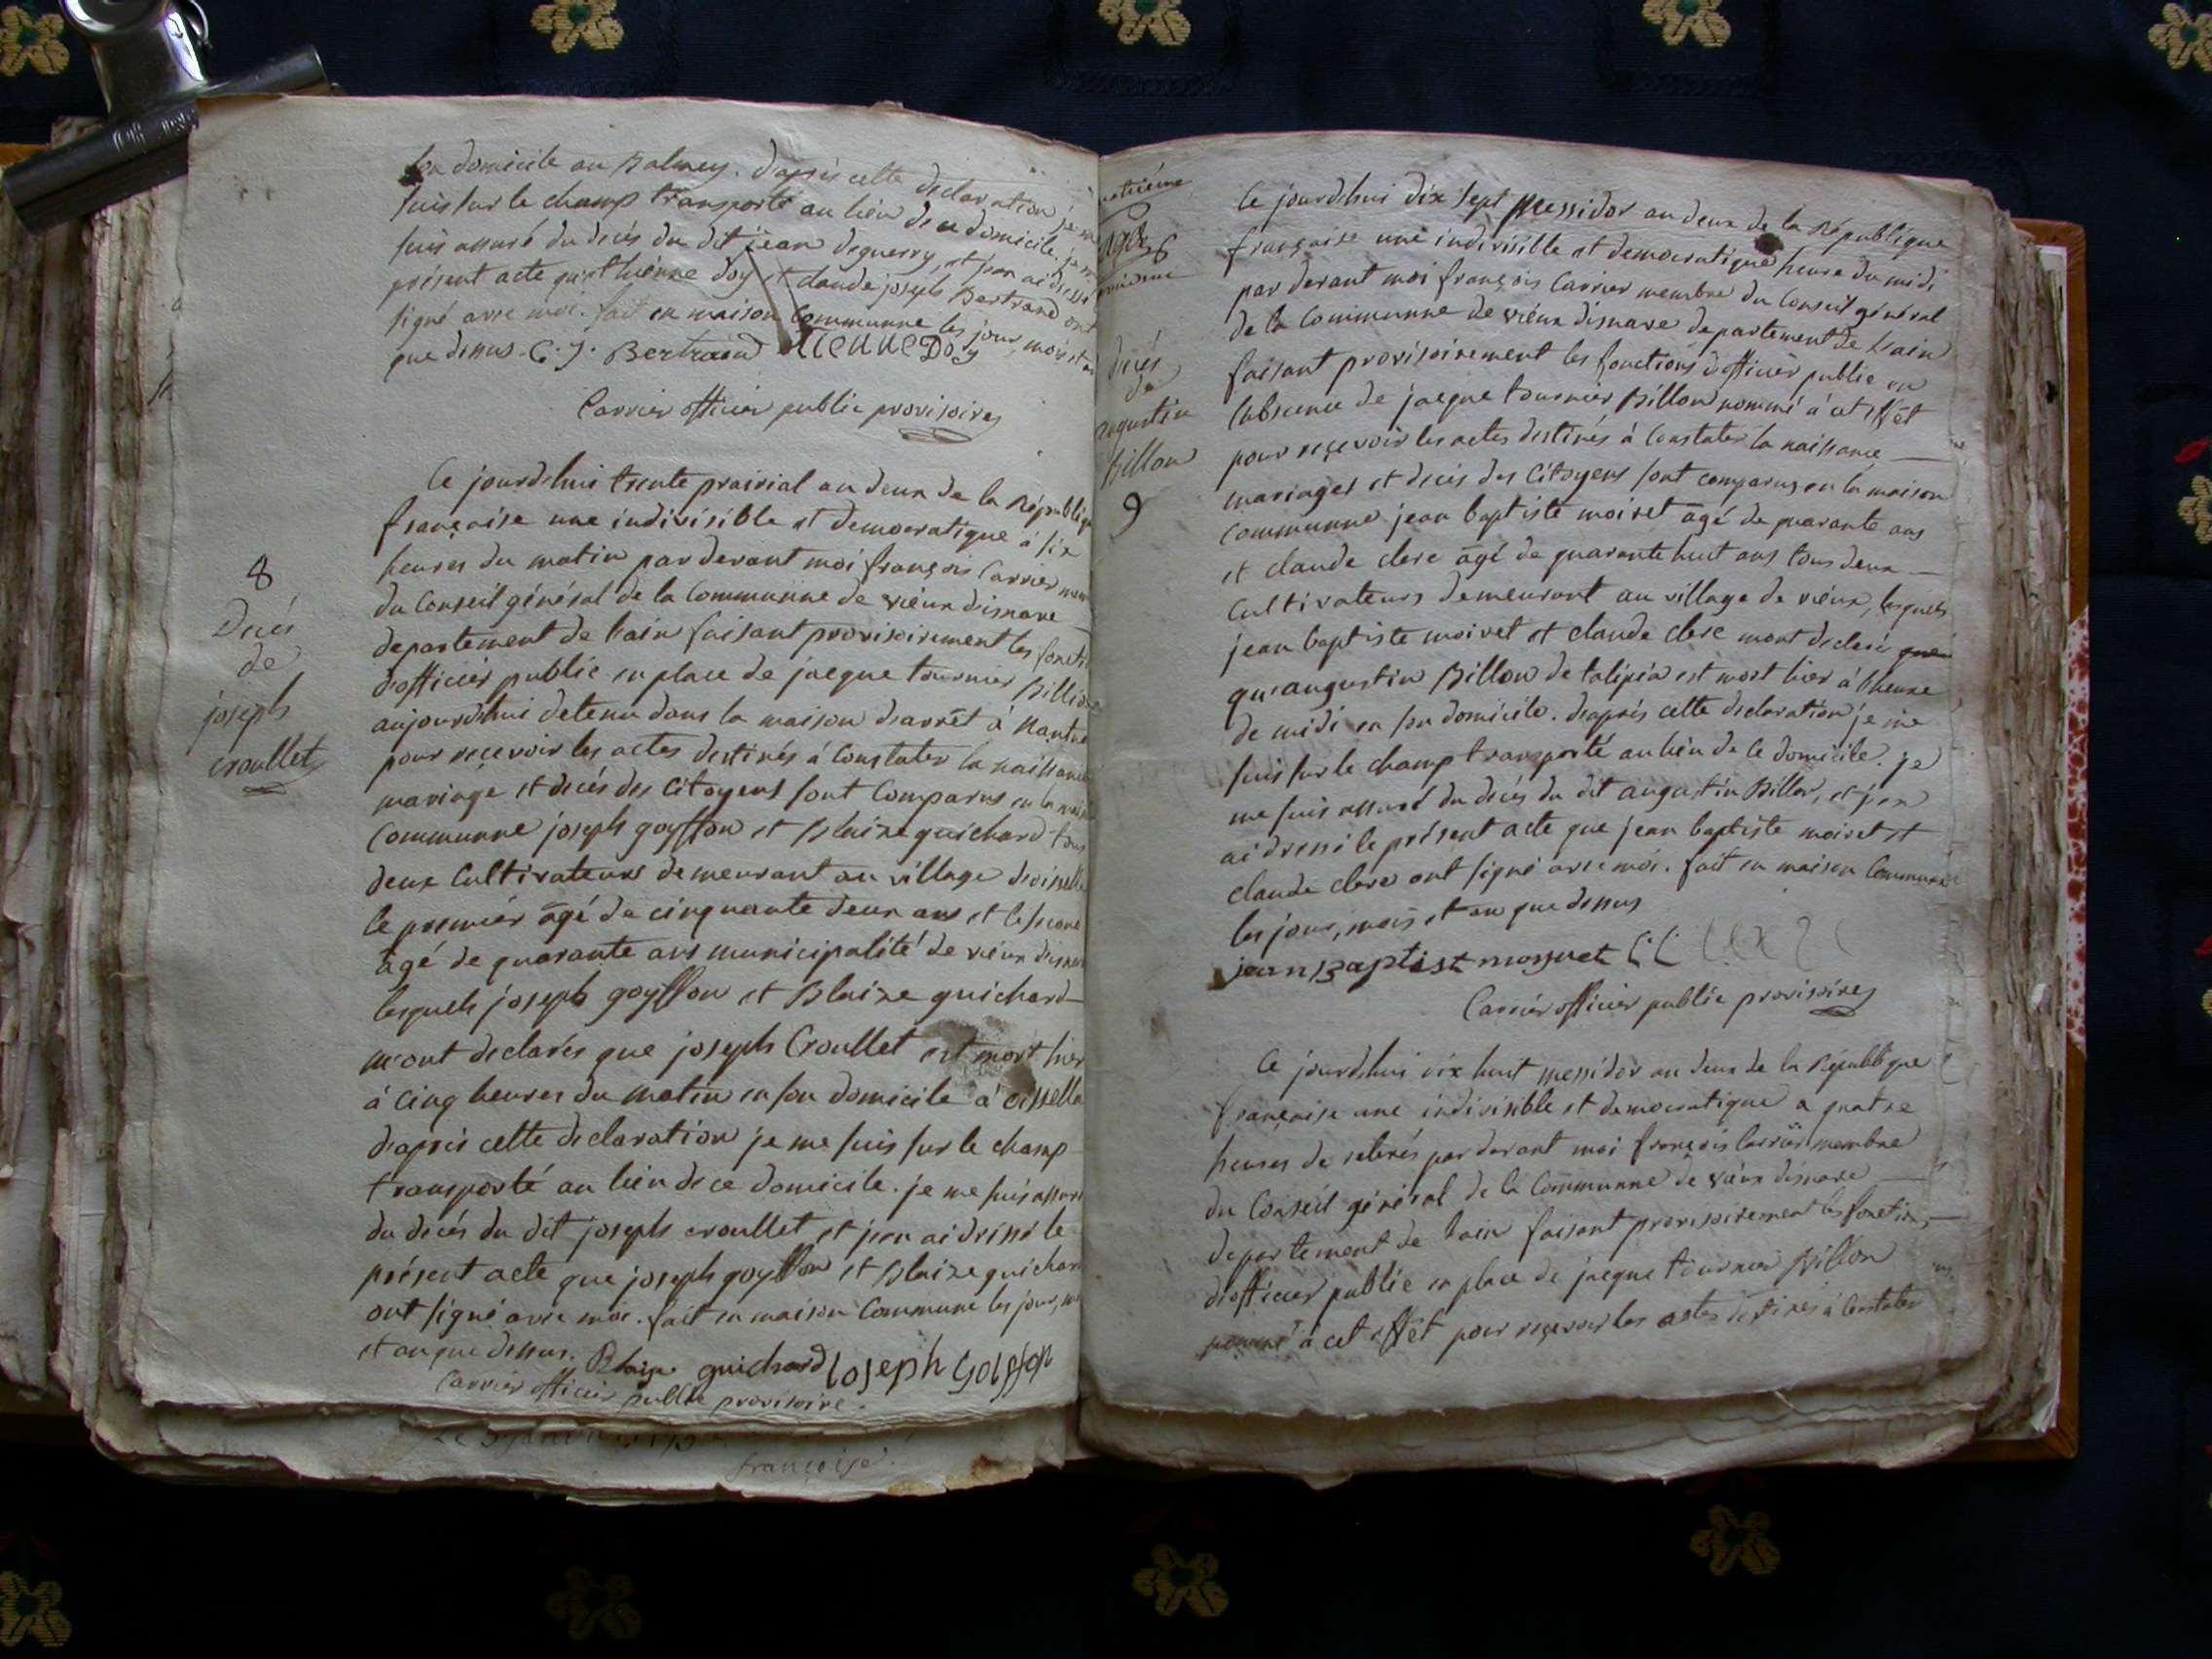 son domicile au Balmey. d'après cette declaration je me
suis sur le champ transporté au lieu de ce domicile. je me
suis assuré du decés du dit jean deguerry, et j'en ai dressé
présent acte qu'ethiénne doy et claude joseph Bertrand ont
signé avec moi. fait en maison communne les jour, mois et an
que dessus. C. J. Bertrand etienne Doy
Carrier officier public provisoire
Ce jourd'hui trente prairial an deux de la Républiq
françaïse une indivisible et democratique à six
heures du matin par devant moi françois Carrier mem
du Conseil général de la Communne de viéux disnave
departement de l'ain faisant provisoirement les foncti
d'officier public en place de jacque tournier Billion
aujourd'hui detenu dans la maison d'arrêt à Nantua
pour reçevoir les actes destinés à Constater la naissance
mariage et decés des Citoyens sont Comparus en la mais
Communne joseph goyffon et Blaize guichard tous
deux Cultivateurs demeurant au village d'oisselle
le premiér âgé de cinquante deux ans et le second
âgé de quarante ans municipalité de viéux disnave
lesquels joseph goyffon et Blaize guichard
m'ont declarés que joseph Croullet est mort hier
à cinq heures du matin en son domicile à oisselle
d'après cette declaration je me suis sur le champ
transporté au lieu de ce domicile. je me suis assuré
du decés du dit joseph croullet et j'en ai dressé le
présent acte que joseph goyffon et Blaize guichar
ont signé avec moi. fait en maison Commune les jour, m
et an que dessus. Blaize guichard Joseph Goiffon
Carrier officier public provisoire.
françoise
8
Decés
de
joseph
croullet
decés
de
augustin
Billon
9
Ce jourd'hui dix sept messidor an deux de la République
françaïse une indivisible et democratique heure du midi
par devant moi françois Carrier membre du Conseil général
de la Communne de viéux disnave departement de l'ain
faisant provisoirement les fonctions d'officier public en
l'absence de jacque tournier Billon nommé à cet effêt
pour reçevoir les actes destinés à Constater la naissance
mariages et decés des Citoyens sont comparus en la maison
communne jean baptiste moiret âgé de quarante ans
et claude clerc âgé de quarante huit ans tous deux
Cultivateurs demeurant au village de viéux, lesquels
jean baptiste moiret et claude clerc m'ont declaré que
qu'augustin Billon de talipia est mort hier à l'heure
de midi en son domicile. d'après cette declaration je me
suis sur le champ transporté au lieu de ce domicile. je
me suis assuré du decés du dit augustin Billon, et j'en
ai dressé le présent acte que jean baptiste moiret et
claude clerc ont signé avec moi. fait en maison Communne
les jour, mois et an que dessus
jean Baptist moyret
Carrier officier public provisoire
Ce jourd'hui dix huit messidor an deux de la République
françaïse une indivisible et democratique à quatre
heures de relevés par devant moi françois Carriér membre
du Conseil général de la Communne de viéux disnave
departement de l'ain faisant provisoirement les fonctions
d'officier public en place de jacque tournier Billon
nommé à cet effêt pour reçevoir les actes destinés à Constater